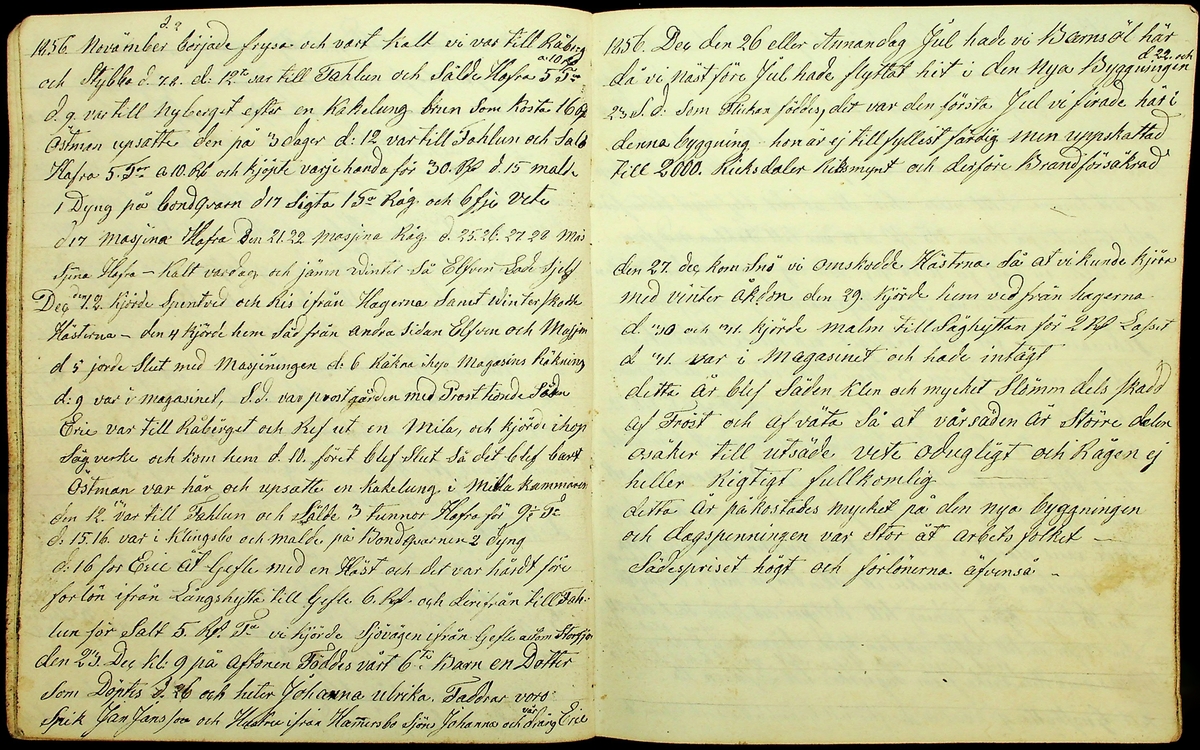 1856. November började frysa och vart kalt vi var till Råberg
och Stybbo d. 7.8. d: 12te var till Fahlun och Sålde Hafra 5 Tr a 10 Rd
d. 9. var till Nyberget efter en Kakelung brun som kosta 16
Östman upsatte den på 3 dager d: 12 var till Fahlun och Såld
Hafra 5. Tr a 10. Rd och kjöpte varjehanda för 30. Rd d. 15 malde
1 Dyng på bondqvarn d 17 Sigta 1 Råg och 6 fje vete
d 17 Masjina Hafra Den 21.22 Masjina Råg d. 25.26.27.28 Mas
Sjina Hafra – kalt vardag och jämn Winter Så Elfven Lade Sjelf
Dec 1.2. kjörde Spentved och Ris ifrån Hagerna Samt Winterskodde
Hästerna – den 4 kjörde hem Säd från andra Sidan Elfven och Masjin
d 5 jorde Slut med Masjiningen d: 6 Räkna ihop Magasins Räkning
d: 9 var i magasinet, S.d. var prostgården med Prost tionde Säden
Eric var till Råberget och Ref ut en Mila, och kjörde ihop
Sågverke och kom hem d. 10. föret blef Slut Så det blef bart
Östman var här och upsatte en kakelung i Milla kammaren
den 12. var till Fahlun och Sålde 3 tunnor Hafra för 9
d: 15.16. var i Klingsbo och malde på Bondqvarnen 2 dyng
d: 16 for Eric åt Gefle med en Häst och det var hårdt före
forlön ifrån Långshytta till Gefle 6. Rd. och derifrån till Fah-
lun för Salt 5. Rd. Tr vi kjörde Sjövägen ifrån Gefle
den 23. Dec kl: 9 på aftonen Föddes vårt 6te Barn en Dotter
Som Döptes d 26 och heter Johanna ulrika. Faddrar voro:
Spik Jan Jansson och Hustru ifrån Hamersbo Sjöns Johanna och vår dräng Eric
1856. Dec den 26 eller Annandag Jul hade vi Barnsöl här
då vi näst före Jul hade flyttat hit i den Nya Byggningen d. 22. och
23 S.d: som flickan föddes, det var den första Jul vi firade här i
denna byggning hon är ej till fyllest färdig men uppskattad
till 2000. Riksdaler Riksmynt och derföre Brandförsäkrad
den 27. dec kom Snö vi omskodde Hästrna Så at vi kunde kjöra
med vinter åkdon den 29. kjörde hem ved från hagerna
d. 30 och 31. kjörde malm till Såghyttan för 2 Rd Lasset
d 31. var i Magasinet och hade intägt
detta år blef Säden klen och mycket Slömm dels skadd
af Frost och af väta Så at vårsäden är Större delen
osäker till utsäde vete odugligt och Rågen ej
heller Rigtigt fullkomlig
detta år påkostades mycket på den nya byggningen
och dagspenningen var Stor åt arbets folket –
Sädespriset högt och forlönerna äfvenså –